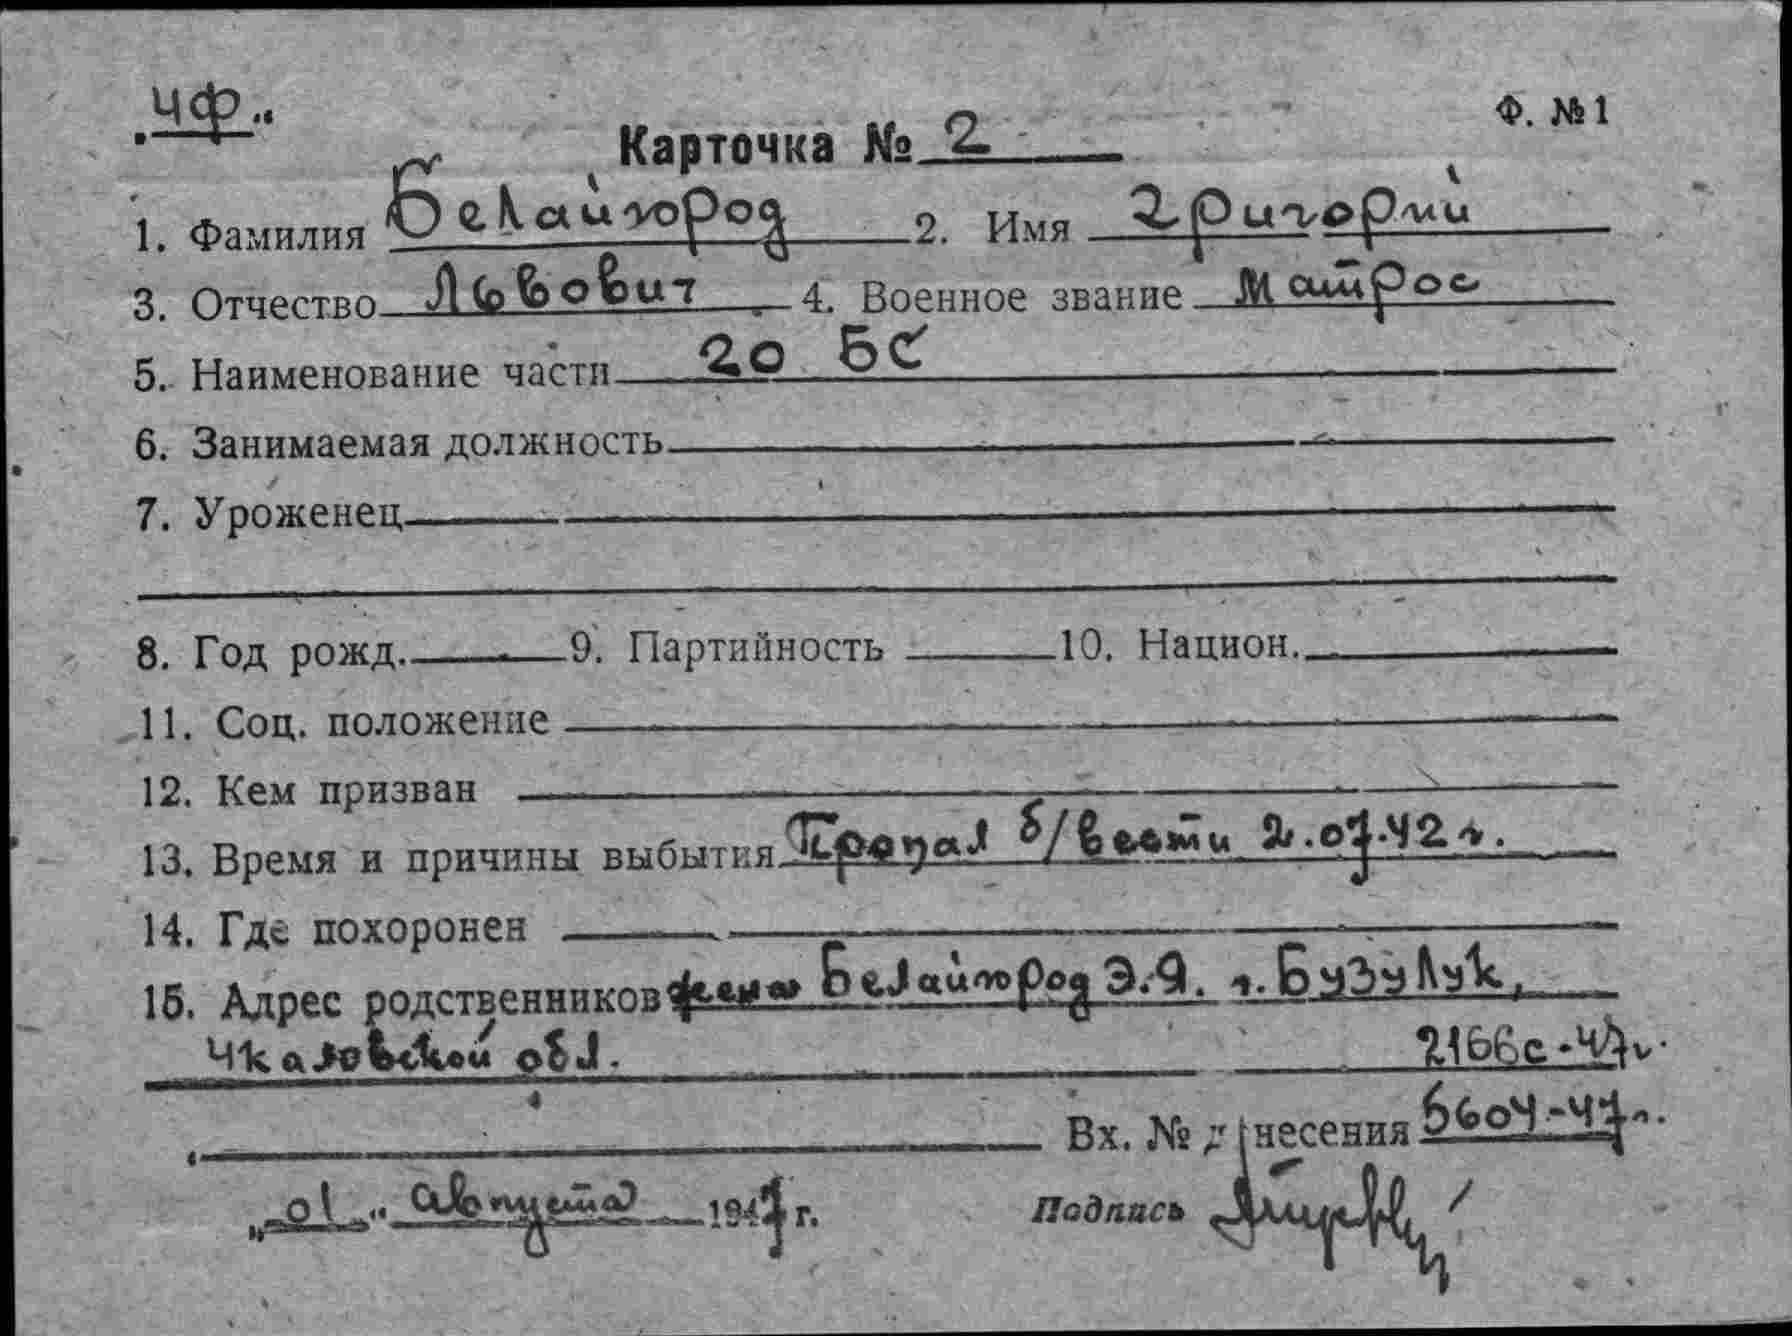 „ЧФ“
Ф. №1
Карточка № 2
1. Фамилия Белайгород 2. Имя Григорий
3. Отчество Львович 4. Военное звание Матрос
5. Наименование части 20 БС
6. Занимаемая должность
7. Уроженец
8. Год рожд. 9. Партийность 10. Национ.
11. Соц. положение
12. Кем призван
13. Время и причины выбытия Пропал б/вести 2.07.42 г.
14. Где похоронен
15. Адрес родственников жена Белайгород Э.Я. г. Бузулук,
Чкаловской обл. 2166с-47г.
Вх. № донесения 5604-47г.
„01“ августа 1947 г. Подпись